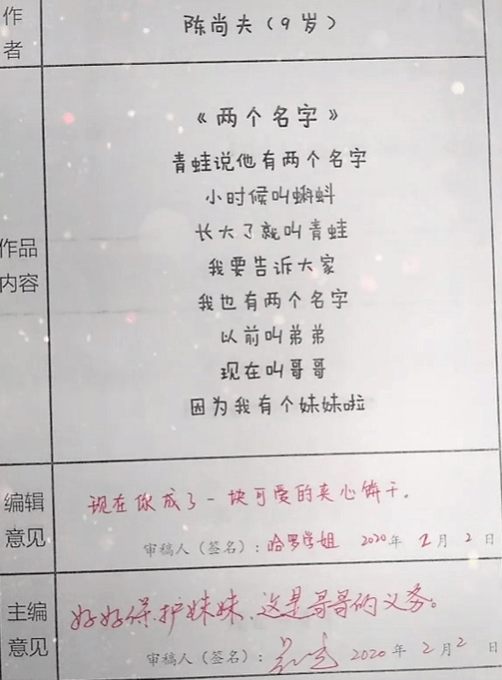 作者
陈尚夫(9岁)
作品内容
《两个名字》
青蛙说他有两个名字
小时候叫蝌蚪
长大了就叫青蛙
我要告诉大家
我也有两个名字
以前叫弟弟
现在叫哥哥
因为我有个妹妹啦
编辑意见
现在你成了一块可爱的夹心饼干。
审稿人(签名):哈罗学姐 2020年2月2日
主编意见
好好保护妹妹,这是哥哥的义务。
审稿人(签名): 2020年2月2日